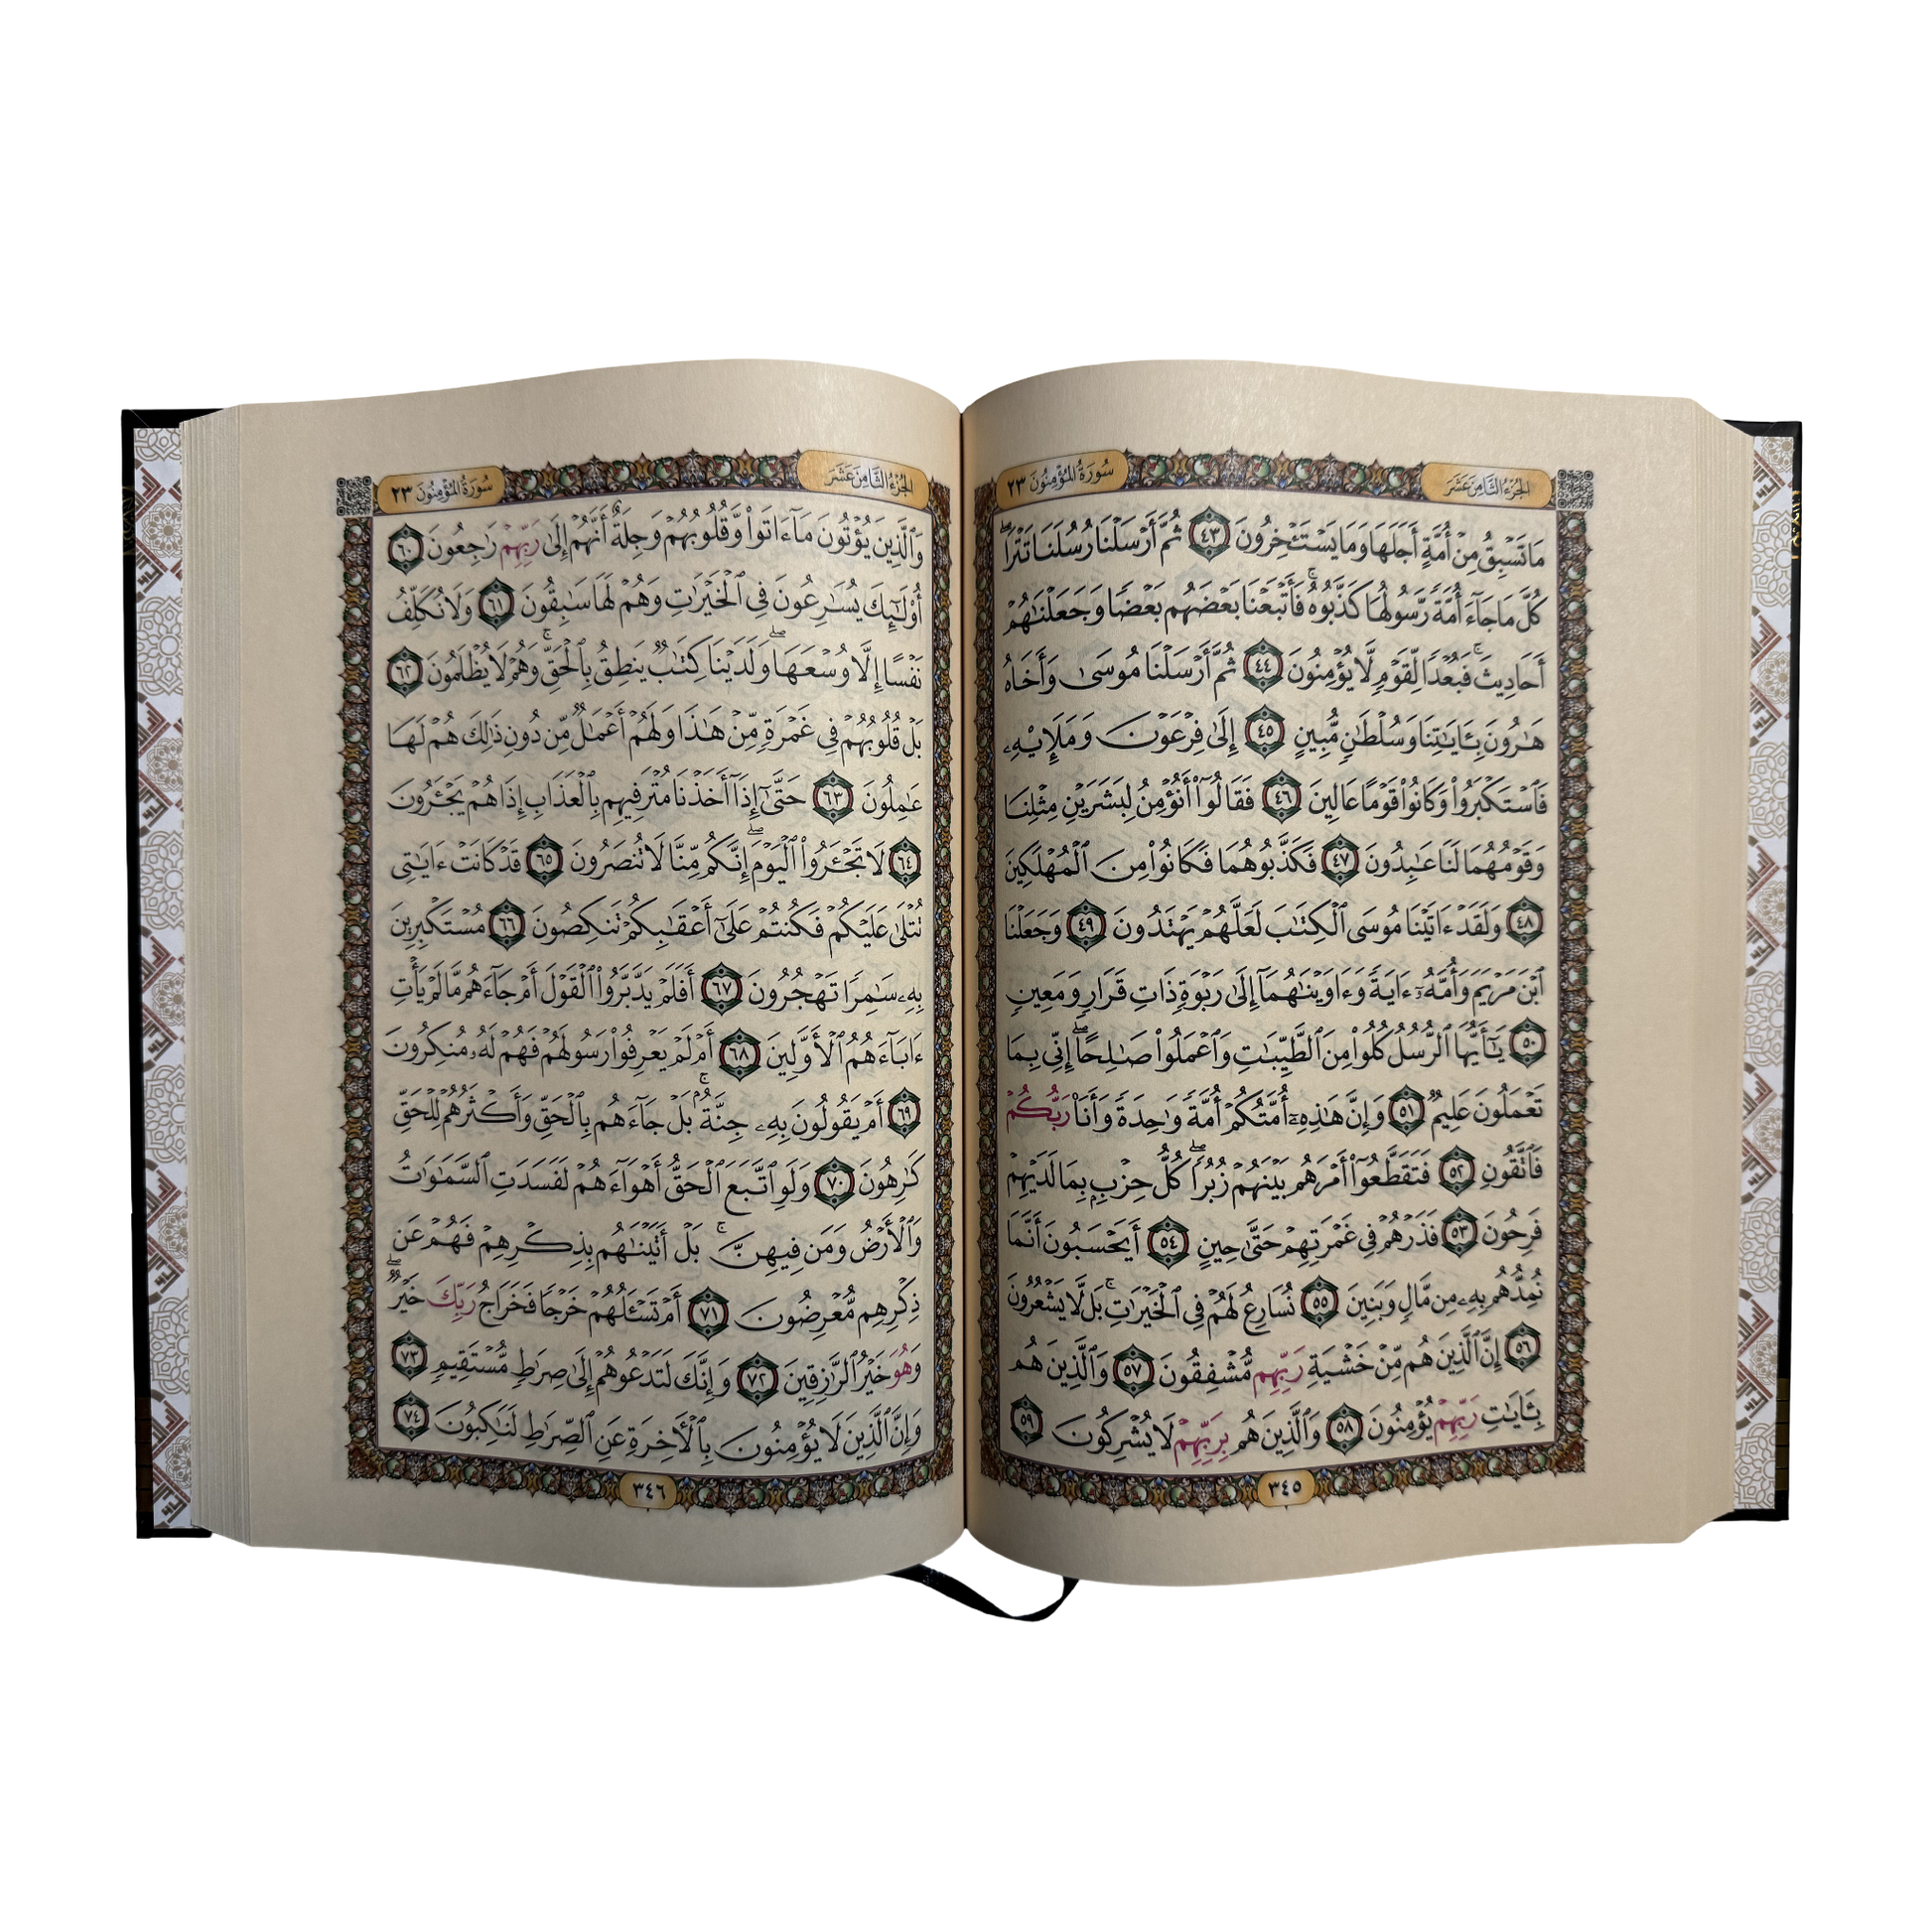 الجزء الثامن عشر
سورة المؤمنون ٢٣
مَا تَسۡبِقُ مِنۡ أُمَّةٍ أَجَلَهَا وَمَا يَسۡتَـٔۡخِرُونَ ٤٣ ثُمَّ أَرۡسَلۡنَا رُسُلَنَا تَتۡرَاۖ
كُلَّ مَا جَآءَ أُمَّةٗ رَّسُولُهَا كَذَّبُوهُۚ فَأَتۡبَعۡنَا بَعۡضَهُم بَعۡضٗا وَجَعَلۡنَٰهُمۡ
أَحَادِيثَۚ فَبُعۡدٗا لِّقَوۡمٖ لَّا يُؤۡمِنُونَ ٤٤ ثُمَّ أَرۡسَلۡنَا مُوسَىٰ وَأَخَاهُ
هَٰرُونَ بِـَٔايَٰتِنَا وَسُلۡطَٰنٖ مُّبِينٍ ٤٥ إِلَىٰ فِرۡعَوۡنَ وَمَلَإِيْهِۦ
فَٱسۡتَكۡبَرُواْ وَكَانُواْ قَوۡمًا عَالِينَ ٤٦ فَقَالُوٓاْ أَنُؤۡمِنُ لِبَشَرَيۡنِ مِثۡلِنَا
وَقَوۡمُهُمَا لَنَا عَٰبِدُونَ ٤٧ فَكَذَّبُوهُمَا فَكَانُواْ مِنَ ٱلۡمُهۡلَكِينَ
٤٨ وَلَقَدۡ ءَاتَيۡنَا مُوسَى ٱلۡكِتَٰبَ لَعَلَّهُمۡ يَهۡتَدُونَ ٤٩ وَجَعَلۡنَا
ٱبۡنَ مَرۡيَمَ وَأُمَّهُۥٓ ءَايَةٗ وَءَاوَيۡنَٰهُمَآ إِلَىٰ رَبۡوَةٖ ذَاتِ قَرَارٖ وَمَعِينٖ
٥٠ يَٰٓأَيُّهَا ٱلرُّسُلُ كُلُواْ مِنَ ٱلطَّيِّبَٰتِ وَٱعۡمَلُواْ صَٰلِحًاۖ إِنِّي بِمَا
تَعۡمَلُونَ عَلِيمٞ ٥١ وَإِنَّ هَٰذِهِۦٓ أُمَّتُكُمۡ أُمَّةٗ وَٰحِدَةٗ وَأَنَا۠ رَبُّكُمۡ
فَٱتَّقُونِ ٥٢ فَتَقَطَّعُوٓاْ أَمۡرَهُم بَيۡنَهُمۡ زُبُرٗاۖ كُلُّ حِزۡبِۭ بِمَا لَدَيۡهِمۡ
فَرِحُونَ ٥٣ فَذَرۡهُمۡ فِي غَمۡرَتِهِمۡ حَتَّىٰ حِينٍ ٥٤ أَيَحۡسَبُونَ أَنَّمَا
نُمِدُّهُم بِهِۦ مِن مَّالٖ وَبَنِينَ ٥٥ نُسَارِعُ لَهُمۡ فِي ٱلۡخَيۡرَٰتِۚ بَل لَّا يَشۡعُرُونَ
٥٦ إِنَّ ٱلَّذِينَ هُم مِّنۡ خَشۡيَةِ رَبِّهِم مُّشۡفِقُونَ ٥٧ وَٱلَّذِينَ هُم
بِـَٔايَٰتِ رَبِّهِمۡ يُؤۡمِنُونَ ٥٨ وَٱلَّذِينَ هُم بِرَبِّهِمۡ لَا يُشۡرِكُونَ ٥٩
٣٤٥
الجزء الثامن عشر
سورة المؤمنون ٢٣
وَٱلَّذِينَ يُؤۡتُونَ مَآ ءَاتَواْ وَّقُلُوبُهُمۡ وَجِلَةٌ أَنَّهُمۡ إِلَىٰ رَبِّهِمۡ رَٰجِعُونَ ٦٠
أُوْلَٰٓئِكَ يُسَٰرِعُونَ فِي ٱلۡخَيۡرَٰتِ وَهُمۡ لَهَا سَٰبِقُونَ ٦١ وَلَا نُكَلِّفُ
نَفۡسًا إِلَّا وُسۡعَهَاۖ وَلَدَيۡنَا كِتَٰبٞ يَنطِقُ بِٱلۡحَقِّۚ وَهُمۡ لَا يُظۡلَمُونَ ٦٢
بَلۡ قُلُوبُهُمۡ فِي غَمۡرَةٖ مِّنۡ هَٰذَا وَلَهُمۡ أَعۡمَٰلٞ مِّن دُونِ ذَٰلِكَ هُمۡ لَهَا
عَٰمِلُونَ ٦٣ حَتَّىٰٓ إِذَآ أَخَذۡنَا مُتۡرَفِيهِم بِٱلۡعَذَابِ إِذَا هُمۡ يَجۡـَٔرُونَ
٦٤ لَا تَجۡـَٔرُواْ ٱلۡيَوۡمَۖ إِنَّكُم مِّنَّا لَا تُنصَرُونَ ٦٥ قَدۡ كَانَتۡ ءَايَٰتِي
تُتۡلَىٰ عَلَيۡكُمۡ فَكُنتُمۡ عَلَىٰٓ أَعۡقَٰبِكُمۡ تَنكِصُونَ ٦٦ مُسۡتَكۡبِرِينَ
بِهِۦ سَٰمِرٗا تَهۡجُرُونَ ٦٧ أَفَلَمۡ يَدَّبَّرُواْ ٱلۡقَوۡلَ أَمۡ جَآءَهُم مَّا لَمۡ يَأۡتِ
ءَابَآءَهُمُ ٱلۡأَوَّلِينَ ٦٨ أَمۡ لَمۡ يَعۡرِفُواْ رَسُولَهُمۡ فَهُمۡ لَهُۥ مُنكِرُونَ
٦٩ أَمۡ يَقُولُونَ بِهِۦ جِنَّةُۢۚ بَلۡ جَآءَهُم بِٱلۡحَقِّ وَأَكۡثَرُهُمۡ لِلۡحَقِّ
كَٰرِهُونَ ٧٠ وَلَوِ ٱتَّبَعَ ٱلۡحَقُّ أَهۡوَآءَهُمۡ لَفَسَدَتِ ٱلسَّمَٰوَٰتُ
وَٱلۡأَرۡضُ وَمَن فِيهِنَّۚ بَلۡ أَتَيۡنَٰهُم بِذِكۡرِهِمۡ فَهُمۡ عَن
ذِكۡرِهِم مُّعۡرِضُونَ ٧١ أَمۡ تَسۡـَٔلُهُمۡ خَرۡجٗا فَخَرَاجُ رَبِّكَ خَيۡرٞۖ
وَهُوَ خَيۡرُ ٱلرَّٰزِقِينَ ٧٢ وَإِنَّكَ لَتَدۡعُوهُمۡ إِلَىٰ صِرَٰطٖ مُّسۡتَقِيمٖ ٧٣
وَإِنَّ ٱلَّذِينَ لَا يُؤۡمِنُونَ بِٱلۡأٓخِرَةِ عَنِ ٱلصِّرَٰطِ لَنَٰكِبُونَ ٧٤
٣٤٦